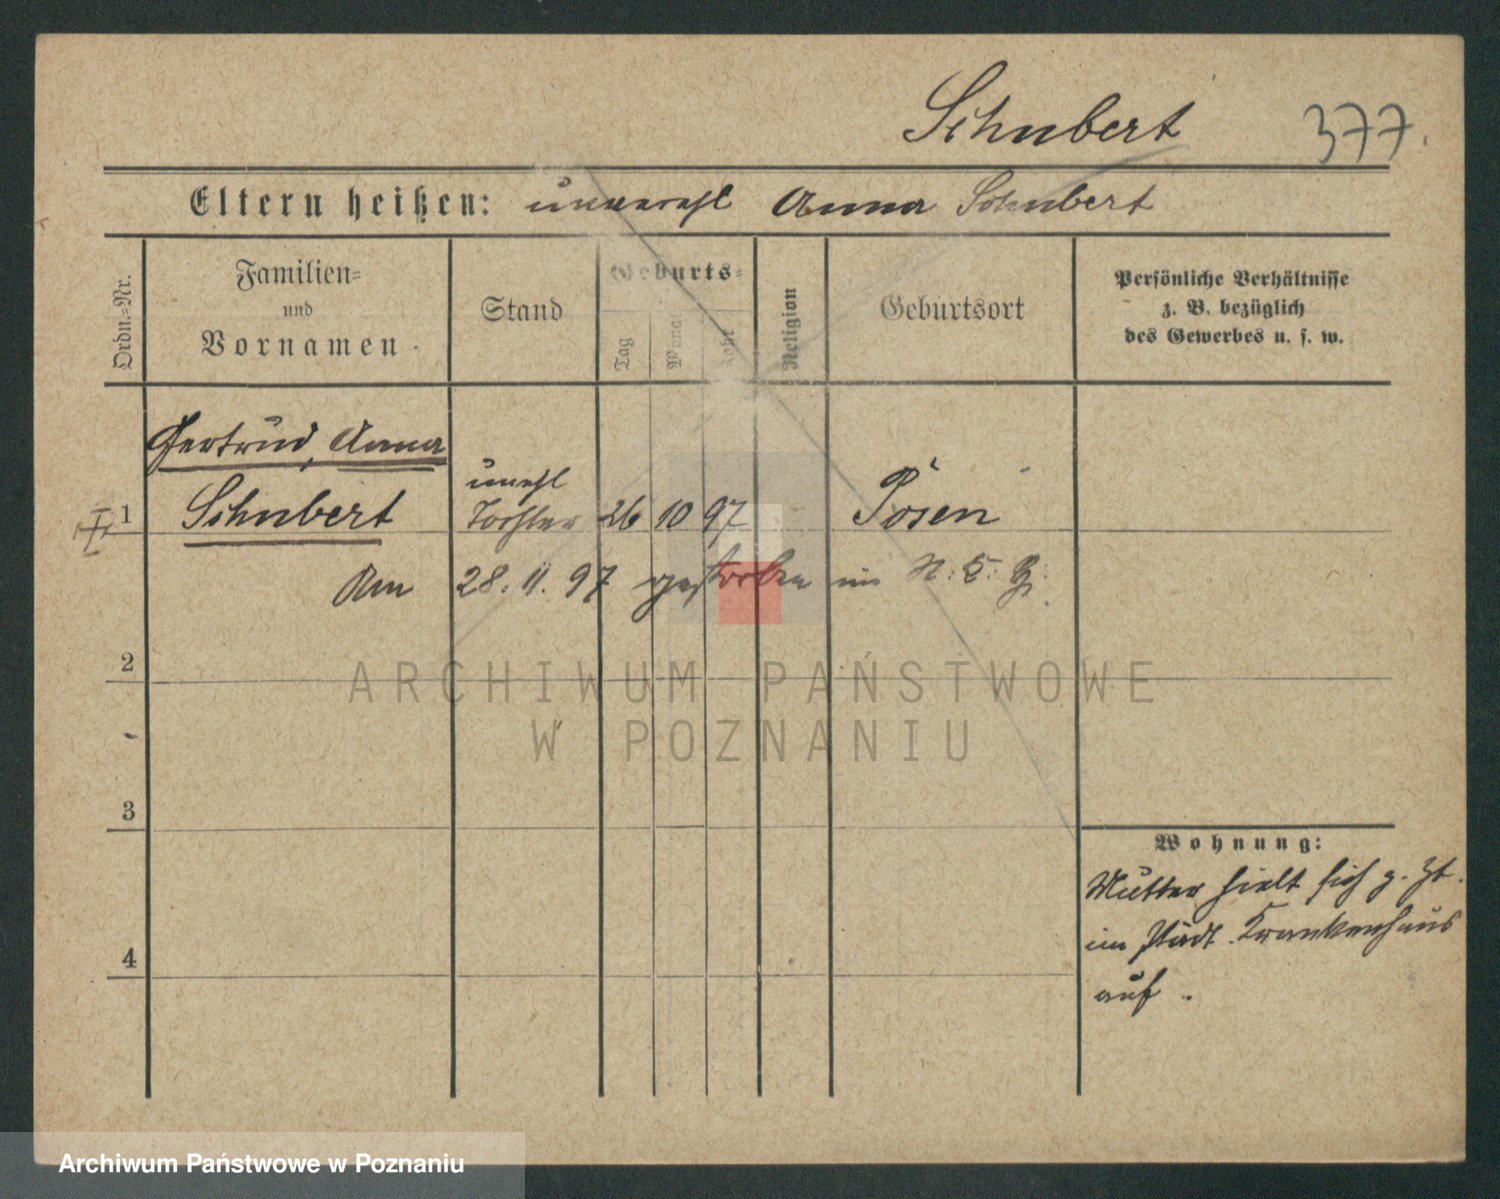 Schubert 377
Eltern heißen: unverehl Anna Schubert
Ordn.=Nr.
Familien=
und
Vornamen
Stand
Geburts=
Tag
Monat
Jahr
Religion
Geburtsort
Persönliche Verhältnisse
z. B. bezüglich
des Gewerbes u. s. w.
Gertrud, Anna
1 Schubert unehl Tochter 26 10 97 Posen
Am 28. 11. 97 gestorben im
2
3
4
Wohnung:
Mutter hielt sich z. Zt.
im städt. Krankenhaus
auf.
ARCHIWUM PAŃSTWOWE
W POZNANIU
Archiwum Państwowe w Poznaniu